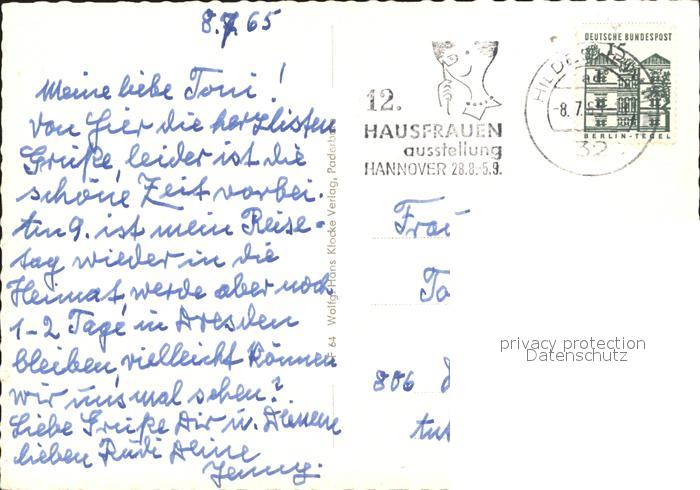 8.7.65
Meine liebe Toni!
von hier die herzlisten
Grüße, leider ist die
schöne Zeit vorbei.
Am 9. ist mein Reise-
tag wieder in die
Heimat, werde aber noch
1-2 Tage in Dresden
bleiben, vielleicht können
wir uns mal sehen?
Liebe Grüße Dir u. Deinem
lieben Rudi Deine
Jenny.
Wolfg. Hans Klocke Verlag, Paderb
F 64
12.
HAUSFRAUEN
ausstellung
HANNOVER 28.8.-5.9.
DEUTSCHE BUNDESPOST
15
BERLIN-TEGEL
HILDES
-8.7.6
32
Frau
To
806
privacy protection
Datenschutz